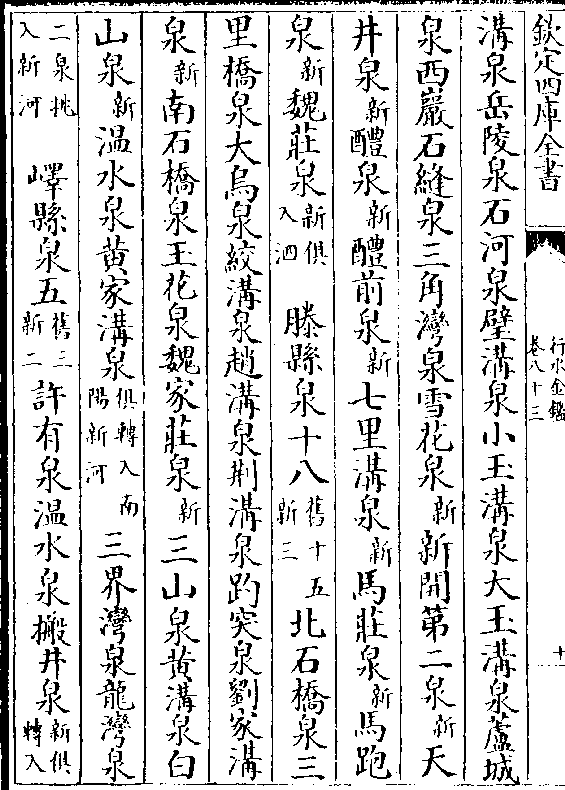 欽定四庫全書
行水金鑑
卷八十三
十
溝泉岳陵泉石河泉壁溝泉小玉溝泉大玉溝泉蘆城
泉西巖石縫泉三角灣泉雪花泉新新開第二泉新天
井泉新醴泉新醴前泉新七里溝泉新馬莊泉新馬跑
泉新魏莊泉新俱入泗 滕縣泉十八舊十五新三北石橋泉三
里橋泉大烏泉絞溝泉趙溝泉荆溝泉趵突泉劉家溝
泉新南石橋泉玉花泉魏家莊泉新三山泉黄溝泉白
山泉新温水泉黄家溝泉俱轉入南陽新河三界灣泉龍灣泉
二泉挑入新河 嶧縣泉五舊三新二許有泉温水泉搬井泉新俱轉入